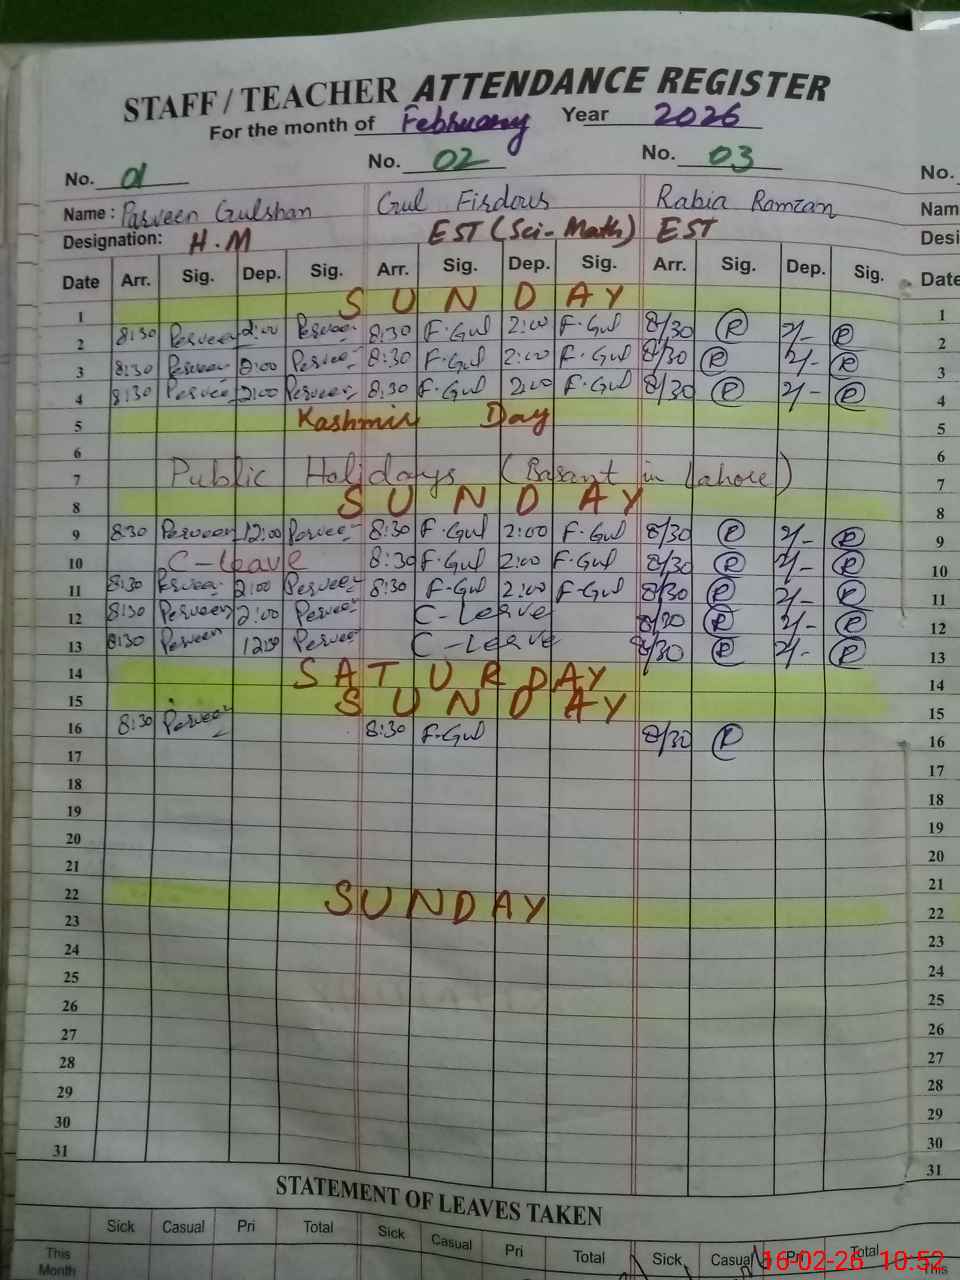 STAFF / TEACHER ATTENDANCE REGISTER
For the month of February Year 2026
No. 01 No. 02 No. 03 No.
Name : Parveen Gulshan Gul Firdous Rabia Ramzan Nam
Designation: H.M EST (Sci-Math) EST Desi
Date Arr. Sig. Dep. Sig. Arr. Sig. Dep. Sig. Arr. Sig. Dep. Sig. Date
1 SUNDAY 1
2 8:30 Parveen 2:00 Parveen 8:30 F.Gul 2:00 F.Gul 8/30 R 2/- R 2
3 8:30 Parveen 2:00 Parveen 8:30 F.Gul 2:00 F.Gul 8/30 R 2/- R 3
4 8:30 Parveen 2:00 Parveen 8:30 F.Gul 2:00 F.Gul 8/30 R 2/- R 4
5 Kashmir Day 5
6 6
7 Public Halidays (Basant in Lahore) 7
8 SUNDAY 8
9 8:30 Parveen 12:00 Parveen 8:30 F.Gul 2:00 F.Gul 8/30 R 2/- R 9
10 C-leave 8:30 F.Gul 2:00 F.Gul 8/30 R 2/- R 10
11 8:30 Parveen 2:00 Parveen 8:30 F.Gul 2:00 F.Gul 8/30 R 2/- R 11
12 8:30 Parveen 2:00 Parveen C-Leave 8/30 R 2/- R 12
13 8:30 Parveen 12:00 Parveen C-Leave 8/30 R 2/- R 13
14 SATURDAY 14
15 SUNDAY 15
16 8:30 Parveen 8:30 F.Gul 8/30 R 16
17 17
18 18
19 19
20 20
21 21
22 SUNDAY 22
23 23
24 24
25 25
26 26
27 27
28 28
29 29
30 30
31 31
STATEMENT OF LEAVES TAKEN
Sick Casual Pri Total Sick Casual Pri Total Sick Casual Pri Total
This Month This
16-02-26 10:52